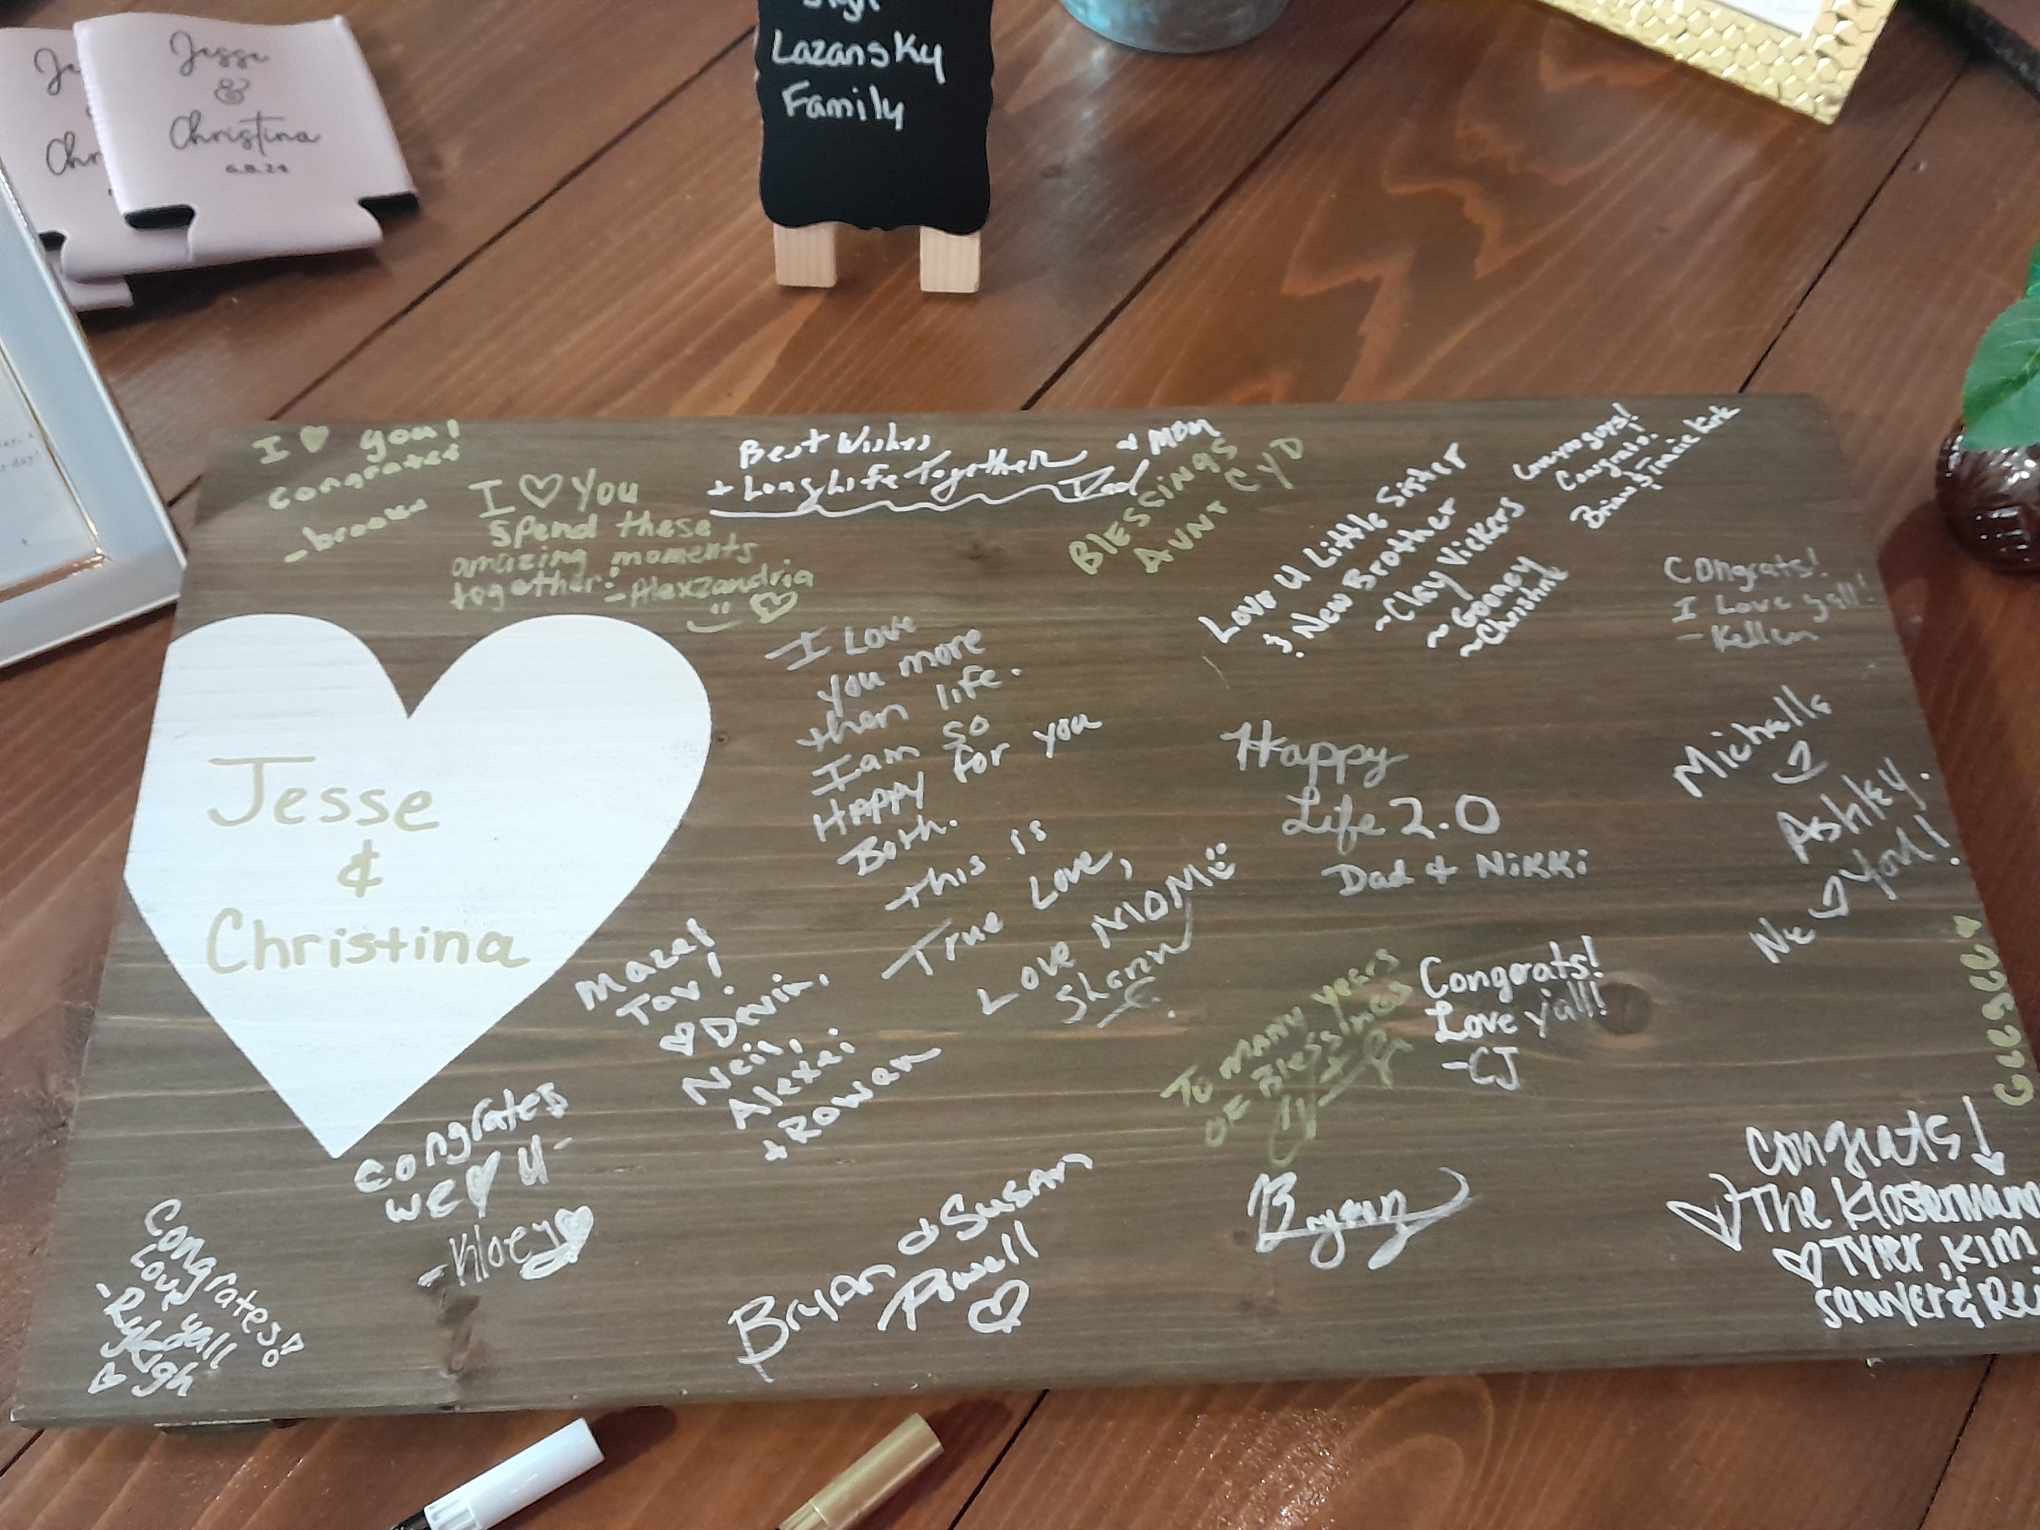 Jesse
&
Christina
6.8.24
Je
Chr
Sign
Lazansky
Family
day!
I ♥ you!
congrates
I ♡ You
spend these
amazing moments
together!
-Alexzandria
Best Wishes
+ Long Life Together
Dad
+ Mom
BLESSINGS
AUNT CYD
Love U Little Sister
& New Brother
~Clay Vickers
~Gooney
~Christine
Congrats!
Brian &
Congrats!
I Love yall!
- Kellen
Jesse
&
Christina
I Love
you more
then life.
I am so
Happy for you
Both.
This is
True Love,
Love MOM
Sharon
Happy
Life 2.0
Dad & Nikki
Michalla
&
Ashley.
We ♡ You!
Mazel
Tov!
♡ Devin,
Neil,
Alexei
+ Rowan
To many years
OF Blessings
Congrats!
Love y'all!
-CJ
congrates
we ♥ u -
-Khloey
Congrates!!
Love yall
-Ryleigh
Bryan & Susan
Powell
Bryan
Congrats!
♡ The Klosterman
♡ Tyler, Kim
Sawyer & Rei